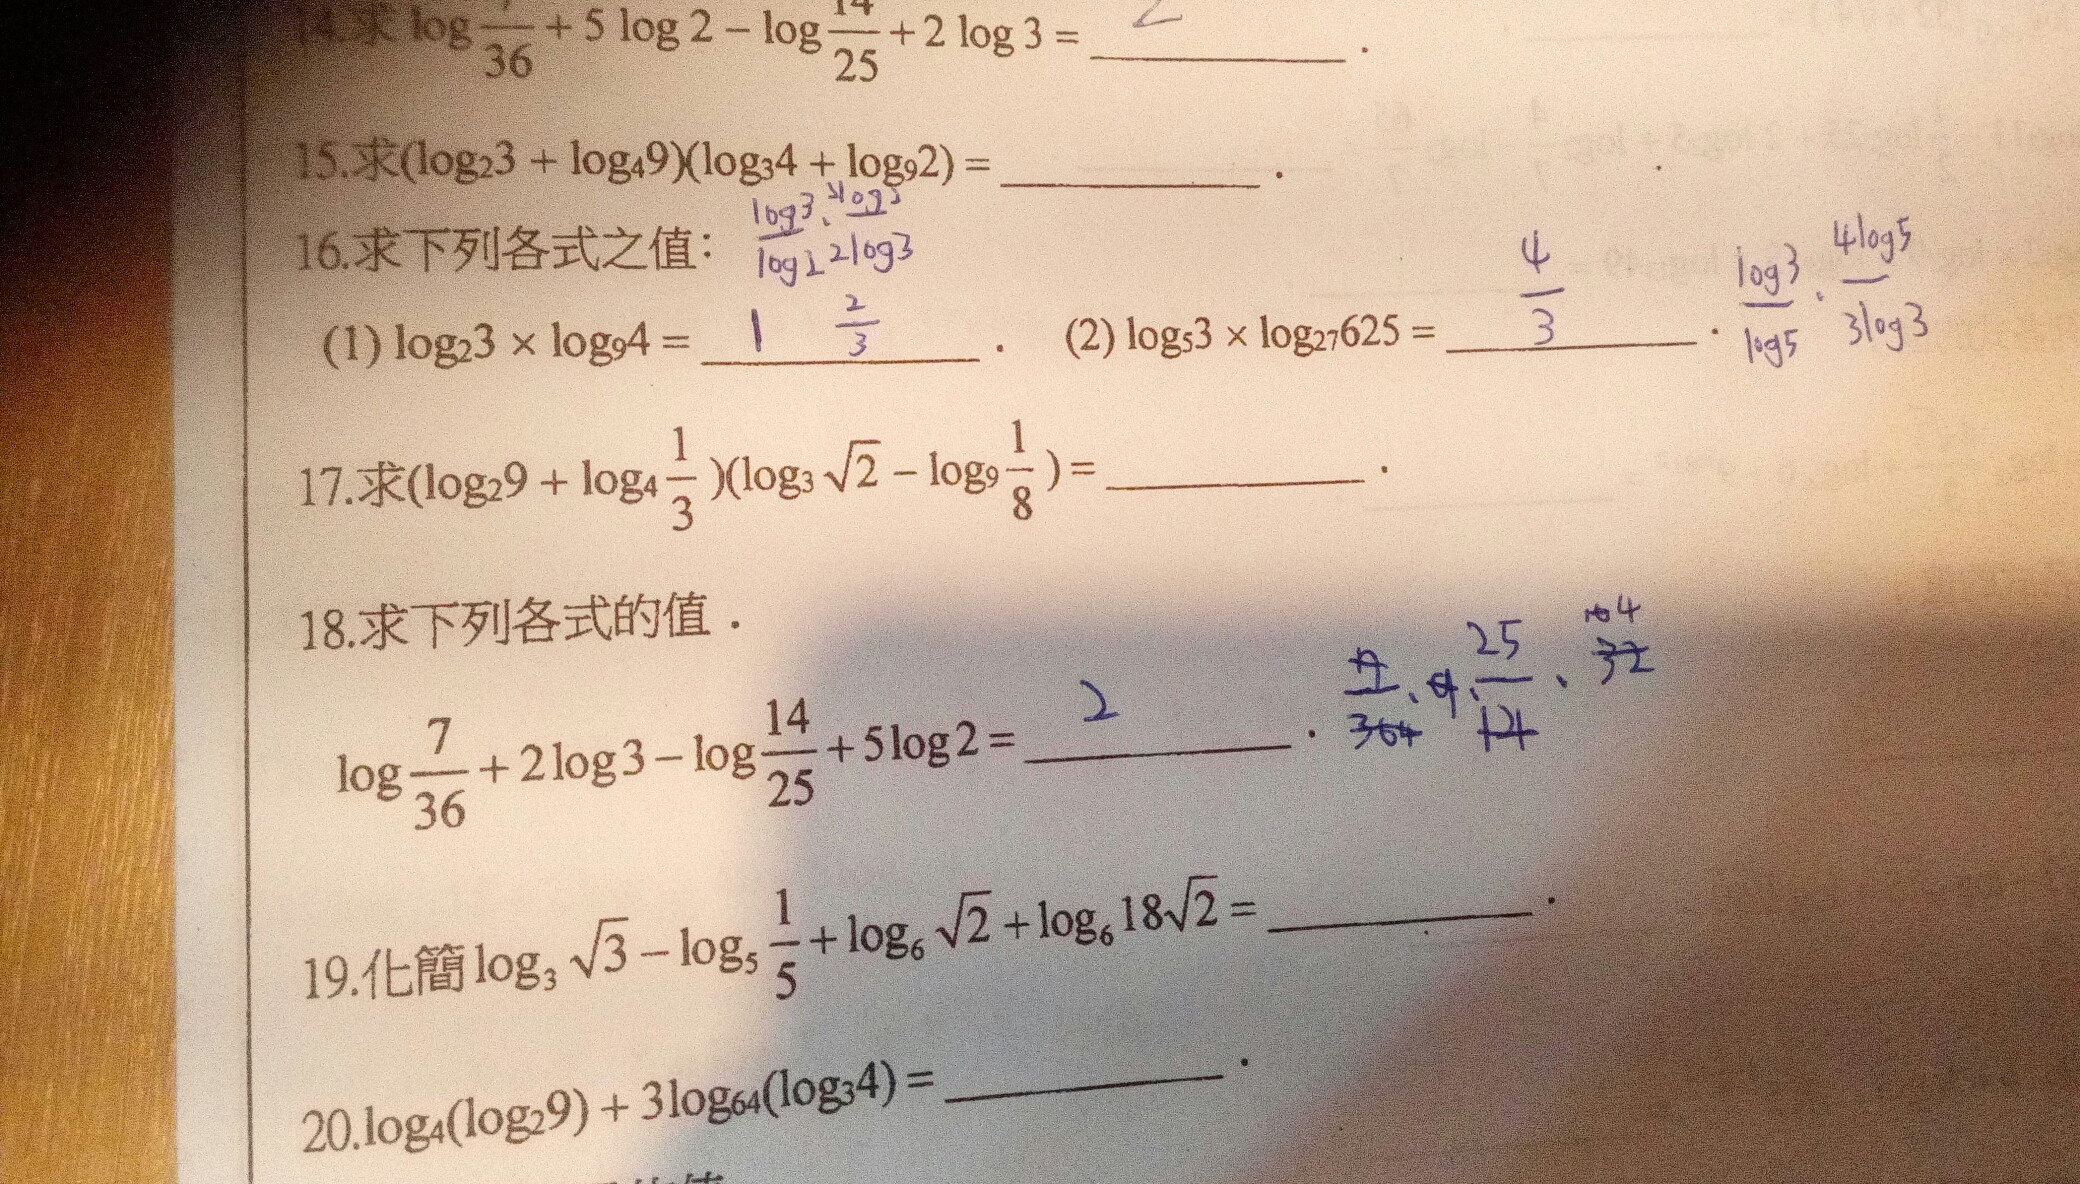 14.求 log 7/36 + 5 log 2 − log 14/25 + 2 log 3 = 2 .
15.求(log₂3 + log₄9)(log₃4 + log₉2) = .
16.求下列各式之值:
log3/log2 · 2log2/2log3
(1) log₂3 × log₉4 = 1 2/3 . (2) log₅3 × log₂₇625 = 4/3 . log3/log5 · 4log5/3log3
17.求(log₂9 + log₄ 1/3 )(log₃ √2 − log₉ 1/8 ) = .
18.求下列各式的值.
log 7/36 + 2 log 3 − log 14/25 + 5 log 2 = 2 . 7/364 · 9 · 25/14 · 32 4
19.化簡 log₃ √3 − log₅ 1/5 + log₆ √2 + log₆ 18√2 = .
20.log₄(log₂9) + 3log₆₄(log₃4) = .